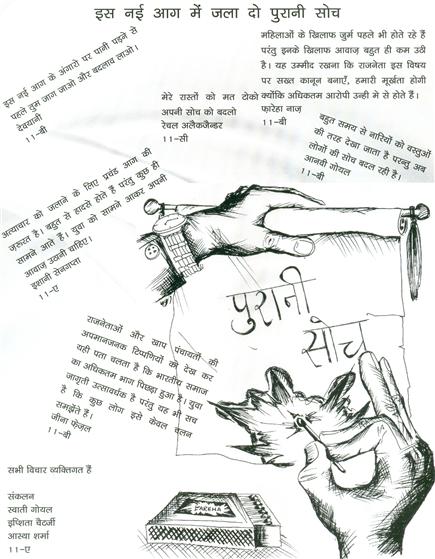 इस नई आग में जला दो पुरानी सोच
इस नई आग के अंगारो पर पानी पड़ने से
पहले तुम जाग जाओ और बदनाव लाओ।
देवयानी
11-बी
मेरे रास्तों को मत टोको
अपनी सोच को बदलो
रेचल अलैकजैन्डर
11-सी
महिलाओं के खिलाफ जुर्म पहले भी होते रहे हैं
परंतु इनके खिलाफ आवाज़ बहुत ही कम उठी
है। यह उम्मीद रखना कि राजनेता इस विषय
पर सख्त कानून बनाएँ, हमारी मूर्खता होगी
क्योंकि अधिकतम आरोपी उन्ही मे से होते हैं।
फ़ारेहा नाज़
11-बी
बहुत समय से नारियों को वस्तुओं
की तरह देखा जाता है परन्तु अब
लोगों की सोच बदल रही है।
आनवी गोयल
11-बी
अत्याचार को जताने के लिए प्रचंड आग की
ज़रूरत है। बहुत से हादसे होते हैं परंतु कुछ ही
सामने आते हैं। युवा को सामने आकर अपनी
आवाज़ उठानी चहिए।
इशानी सेनगप्ता
11-ए
पुरानी
सोच
राजनेताओं और खाप पंचायतों की
अपमानजनक टिप्पणियों को देख कर
यही पता चलता है कि भारतीय समाज
का अधिकतम भाग पिछड़ा हुआ है। युवा
जागृती उत्सावर्धक है परंतु यह भी सच
है कि कुछ लोग इसे केवल चलन
समझते हैं।
जीना फ़ेज़ल
11-बी
सभी विचार व्यक्तिगत हैं
संकलन
स्वाती गोयल
इप्शिता चैटर्जी
आस्था शर्मा
11-ए
FAREHA